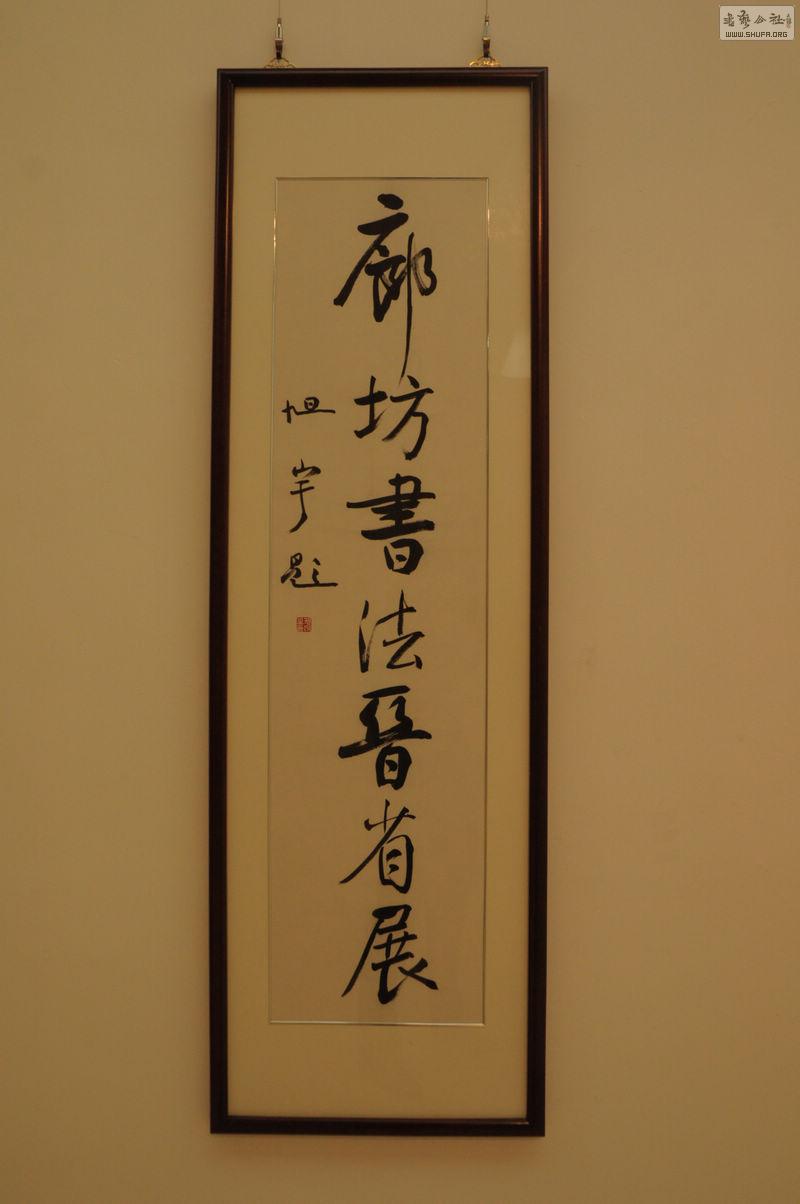 廊坊書法晉省展
旭宇題
書藝公社
WWW.SHUFA.ORG